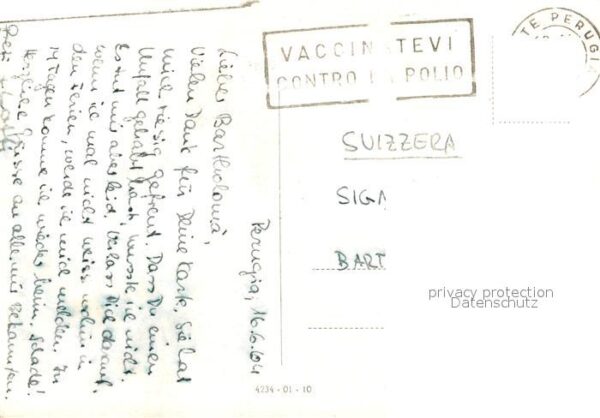 Perugia, 16.6.64
Lieber Bartholomä,
Vielen Dank für Deine Karte. Sie hat
mich riesig gefreut. Dass Du einen
Unfall gehabt hast, wusste ich nicht.
Es tut mir aber leid. Verlass Dich darauf,
wenn ich mal nicht weiss wohin in
den Ferien, werde ich mich melden. In
Tagen komme ich wieder heim. Schade!
Herzliche Grüsse an alle mir Bekannten.
VACCINATEVI
CONTRO LA POLIO
TE PERUGIA
SUIZZERA
SIGA
BART
privacy protection
Datenschutz
4234 - 01 - 10